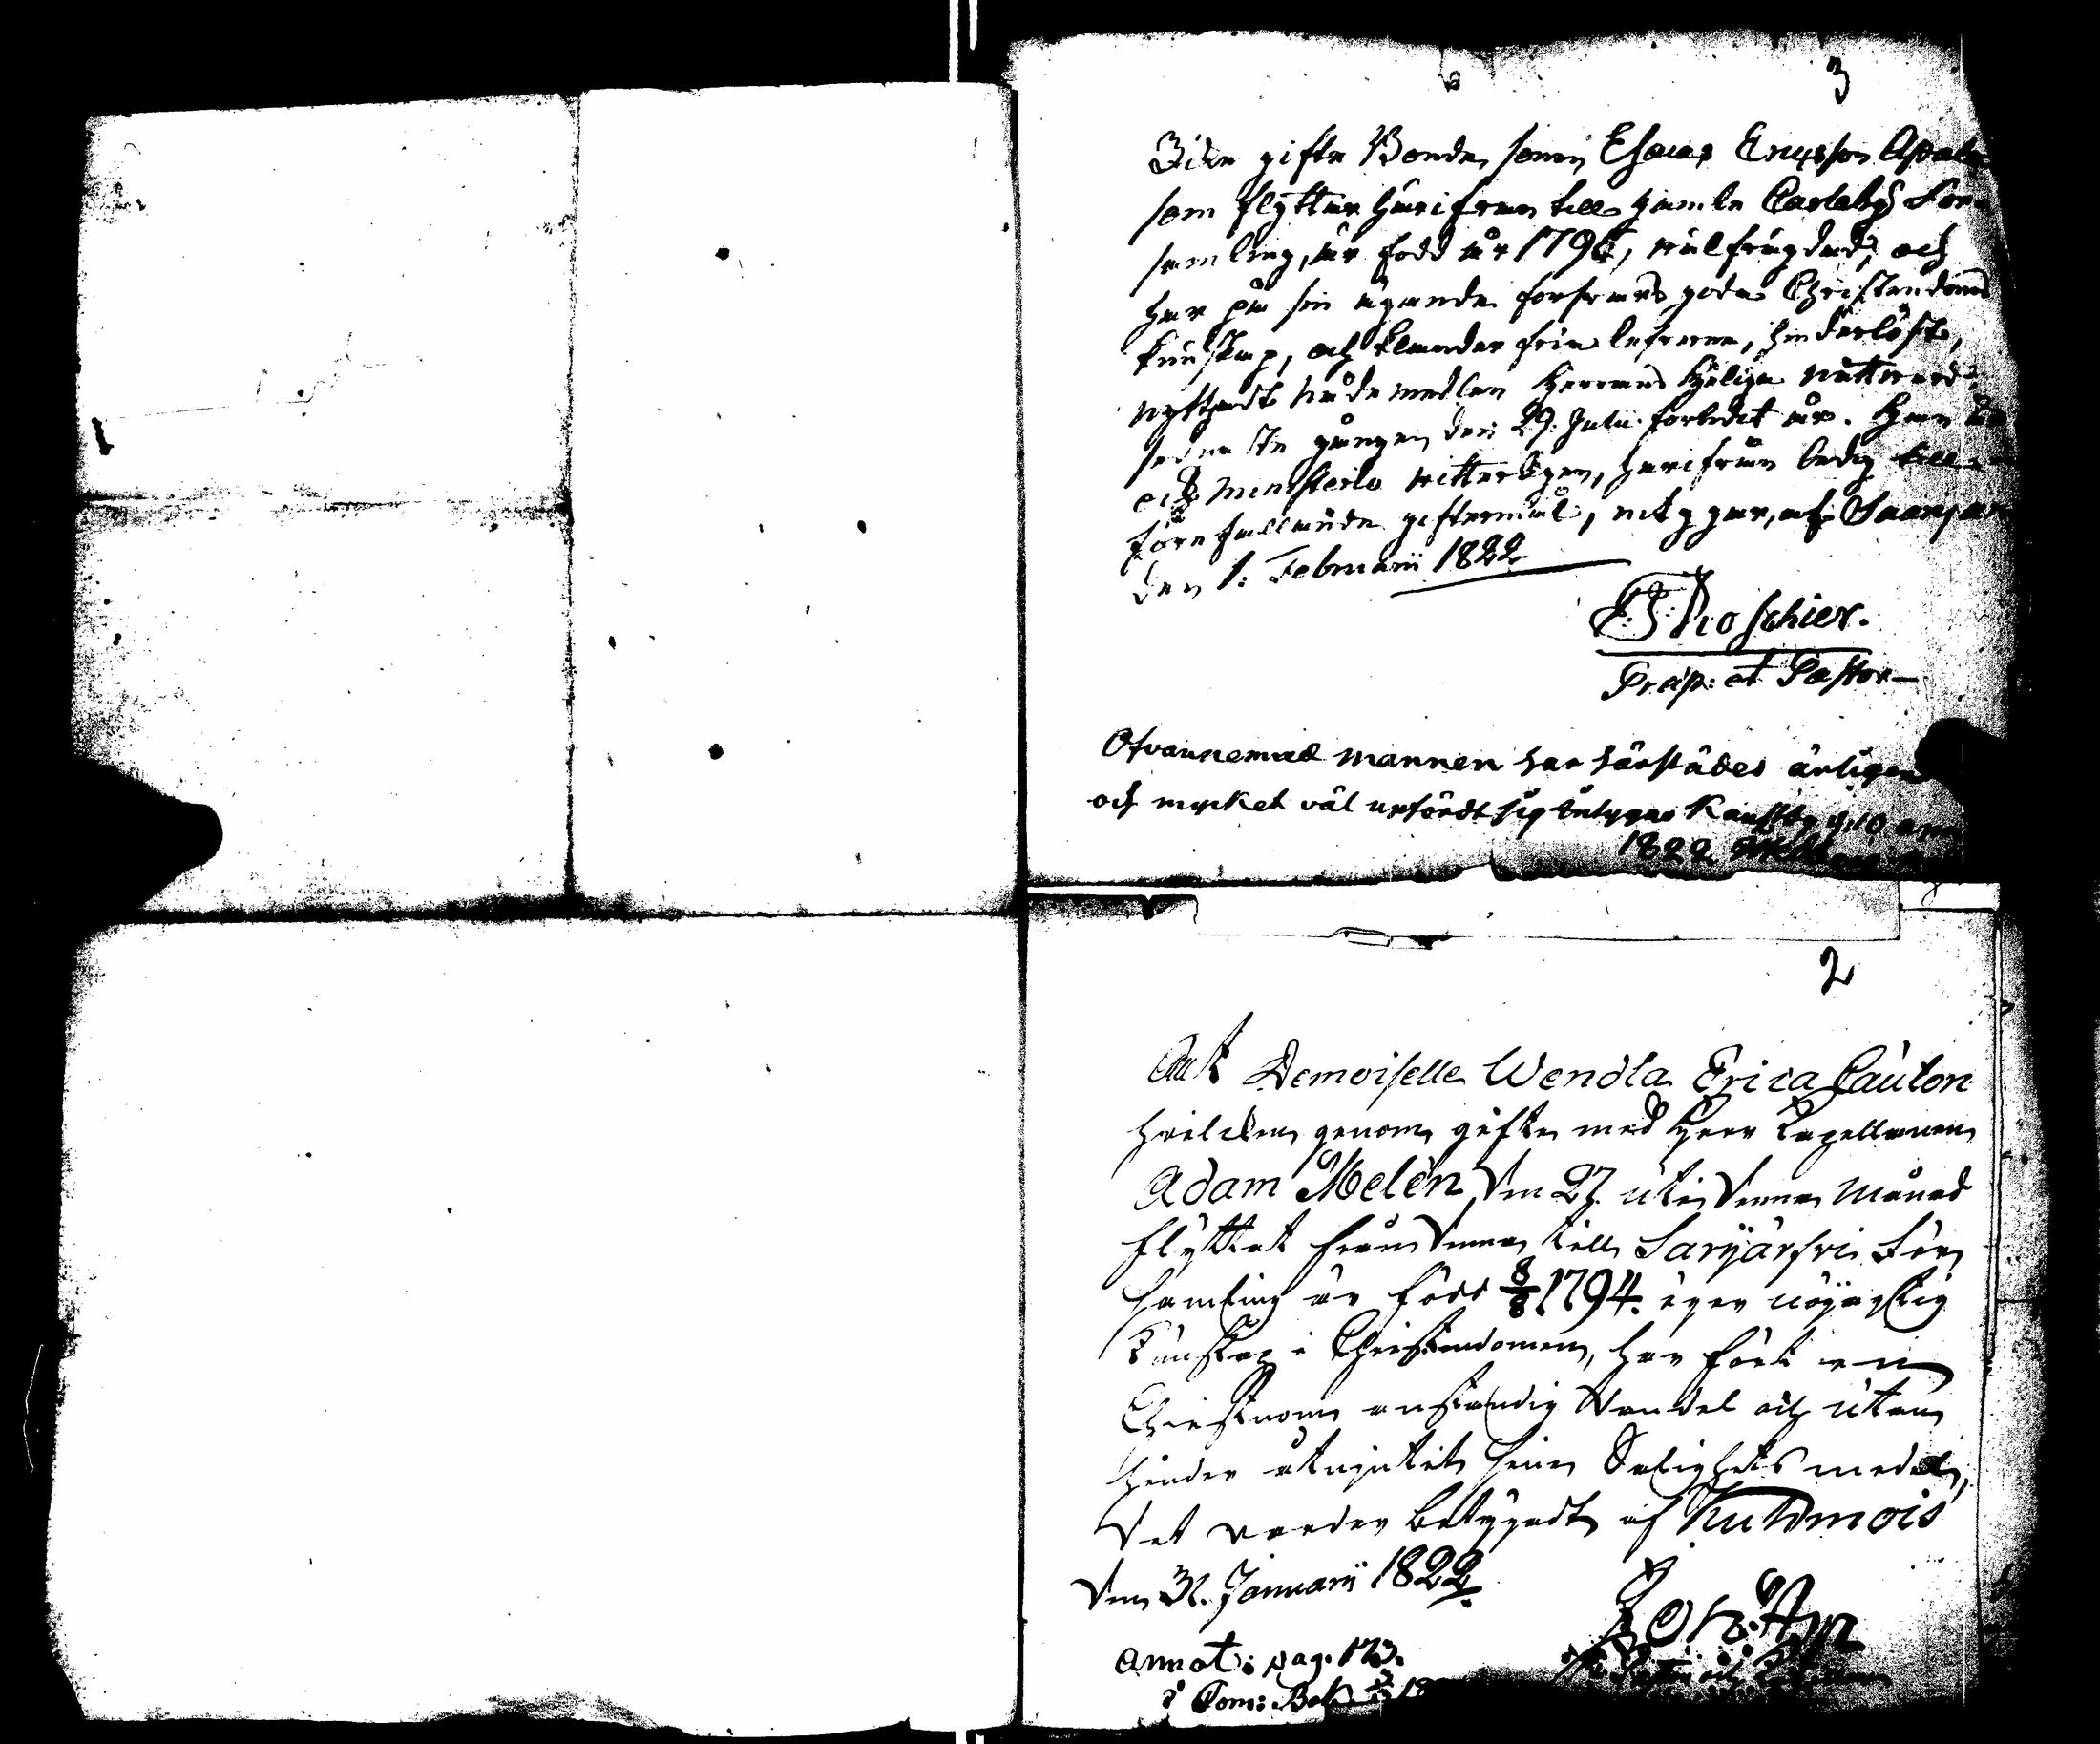 3
gifte Bonde sonen Esaias Ericsson
som flyttar härifrån till gamle Carleby För-
samling, är född år 1796, välfrägdad, och
har på sin ägande försvarlig goda Christendoms
kunskap, och klander fria lefverne, hinderlöst,
nythjadt nådemedlen Herrans Heliga nattvard
sednaste gången den 29. Julii förledit år. Han är
och ministerio vitterligen, härifrån ledig till
förefallande giftermål, attesterar, af Saarijärvi
den 1: Februarii 1822
Roschier.
Præp: et Pastor
Ofvannemnd mannen har härstädes ärligen
och mycket väl upfördt sig betygas Kaustby d: 10
1822
2
Att Demoiselle Wendla Erica Cauton
hvilcken genom gifte med Herr Capellanen
Adam Melén den 27. uti denna Månad
flyttat från denna till Sarijärfvi För
samling är född 8/8 1794. eger nöjagtig
Kunskap i Christendomen, har fört en
Christnom anständig Vandel och utan
hinder utnjutit sina Salighets medel,
det varder betygadt af Kuhmois
den 31. Januarii 1822.
annot: pag. 173.
i Com: Bok